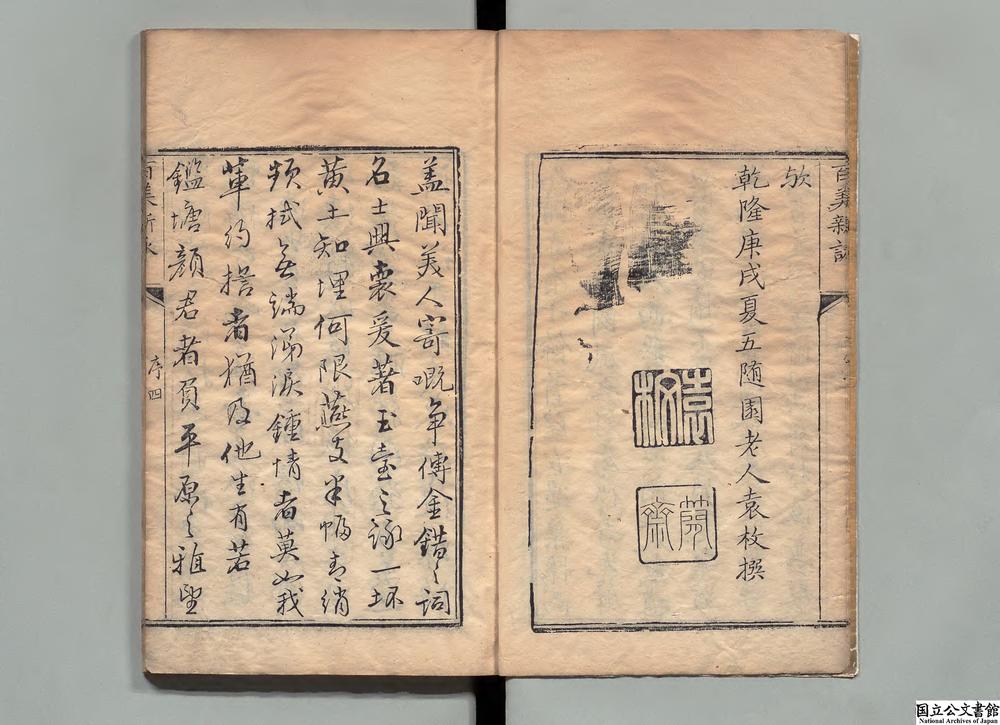 欤
乾隆庚戌夏五随園老人袁枚撰
袁枚
簡齋
盖聞美人寄嘅争傳金錯之詞
名士興衰爰著玉臺之詠一坏
黄土知埋何限燕支半幅青綃
頻拭無端涕淚鍾情者莫如我
輩約指者猶及他生有若
鑑塘顔君者負平原之雅望
百美新詠
序四
国立公文書館
National Archives of Japan